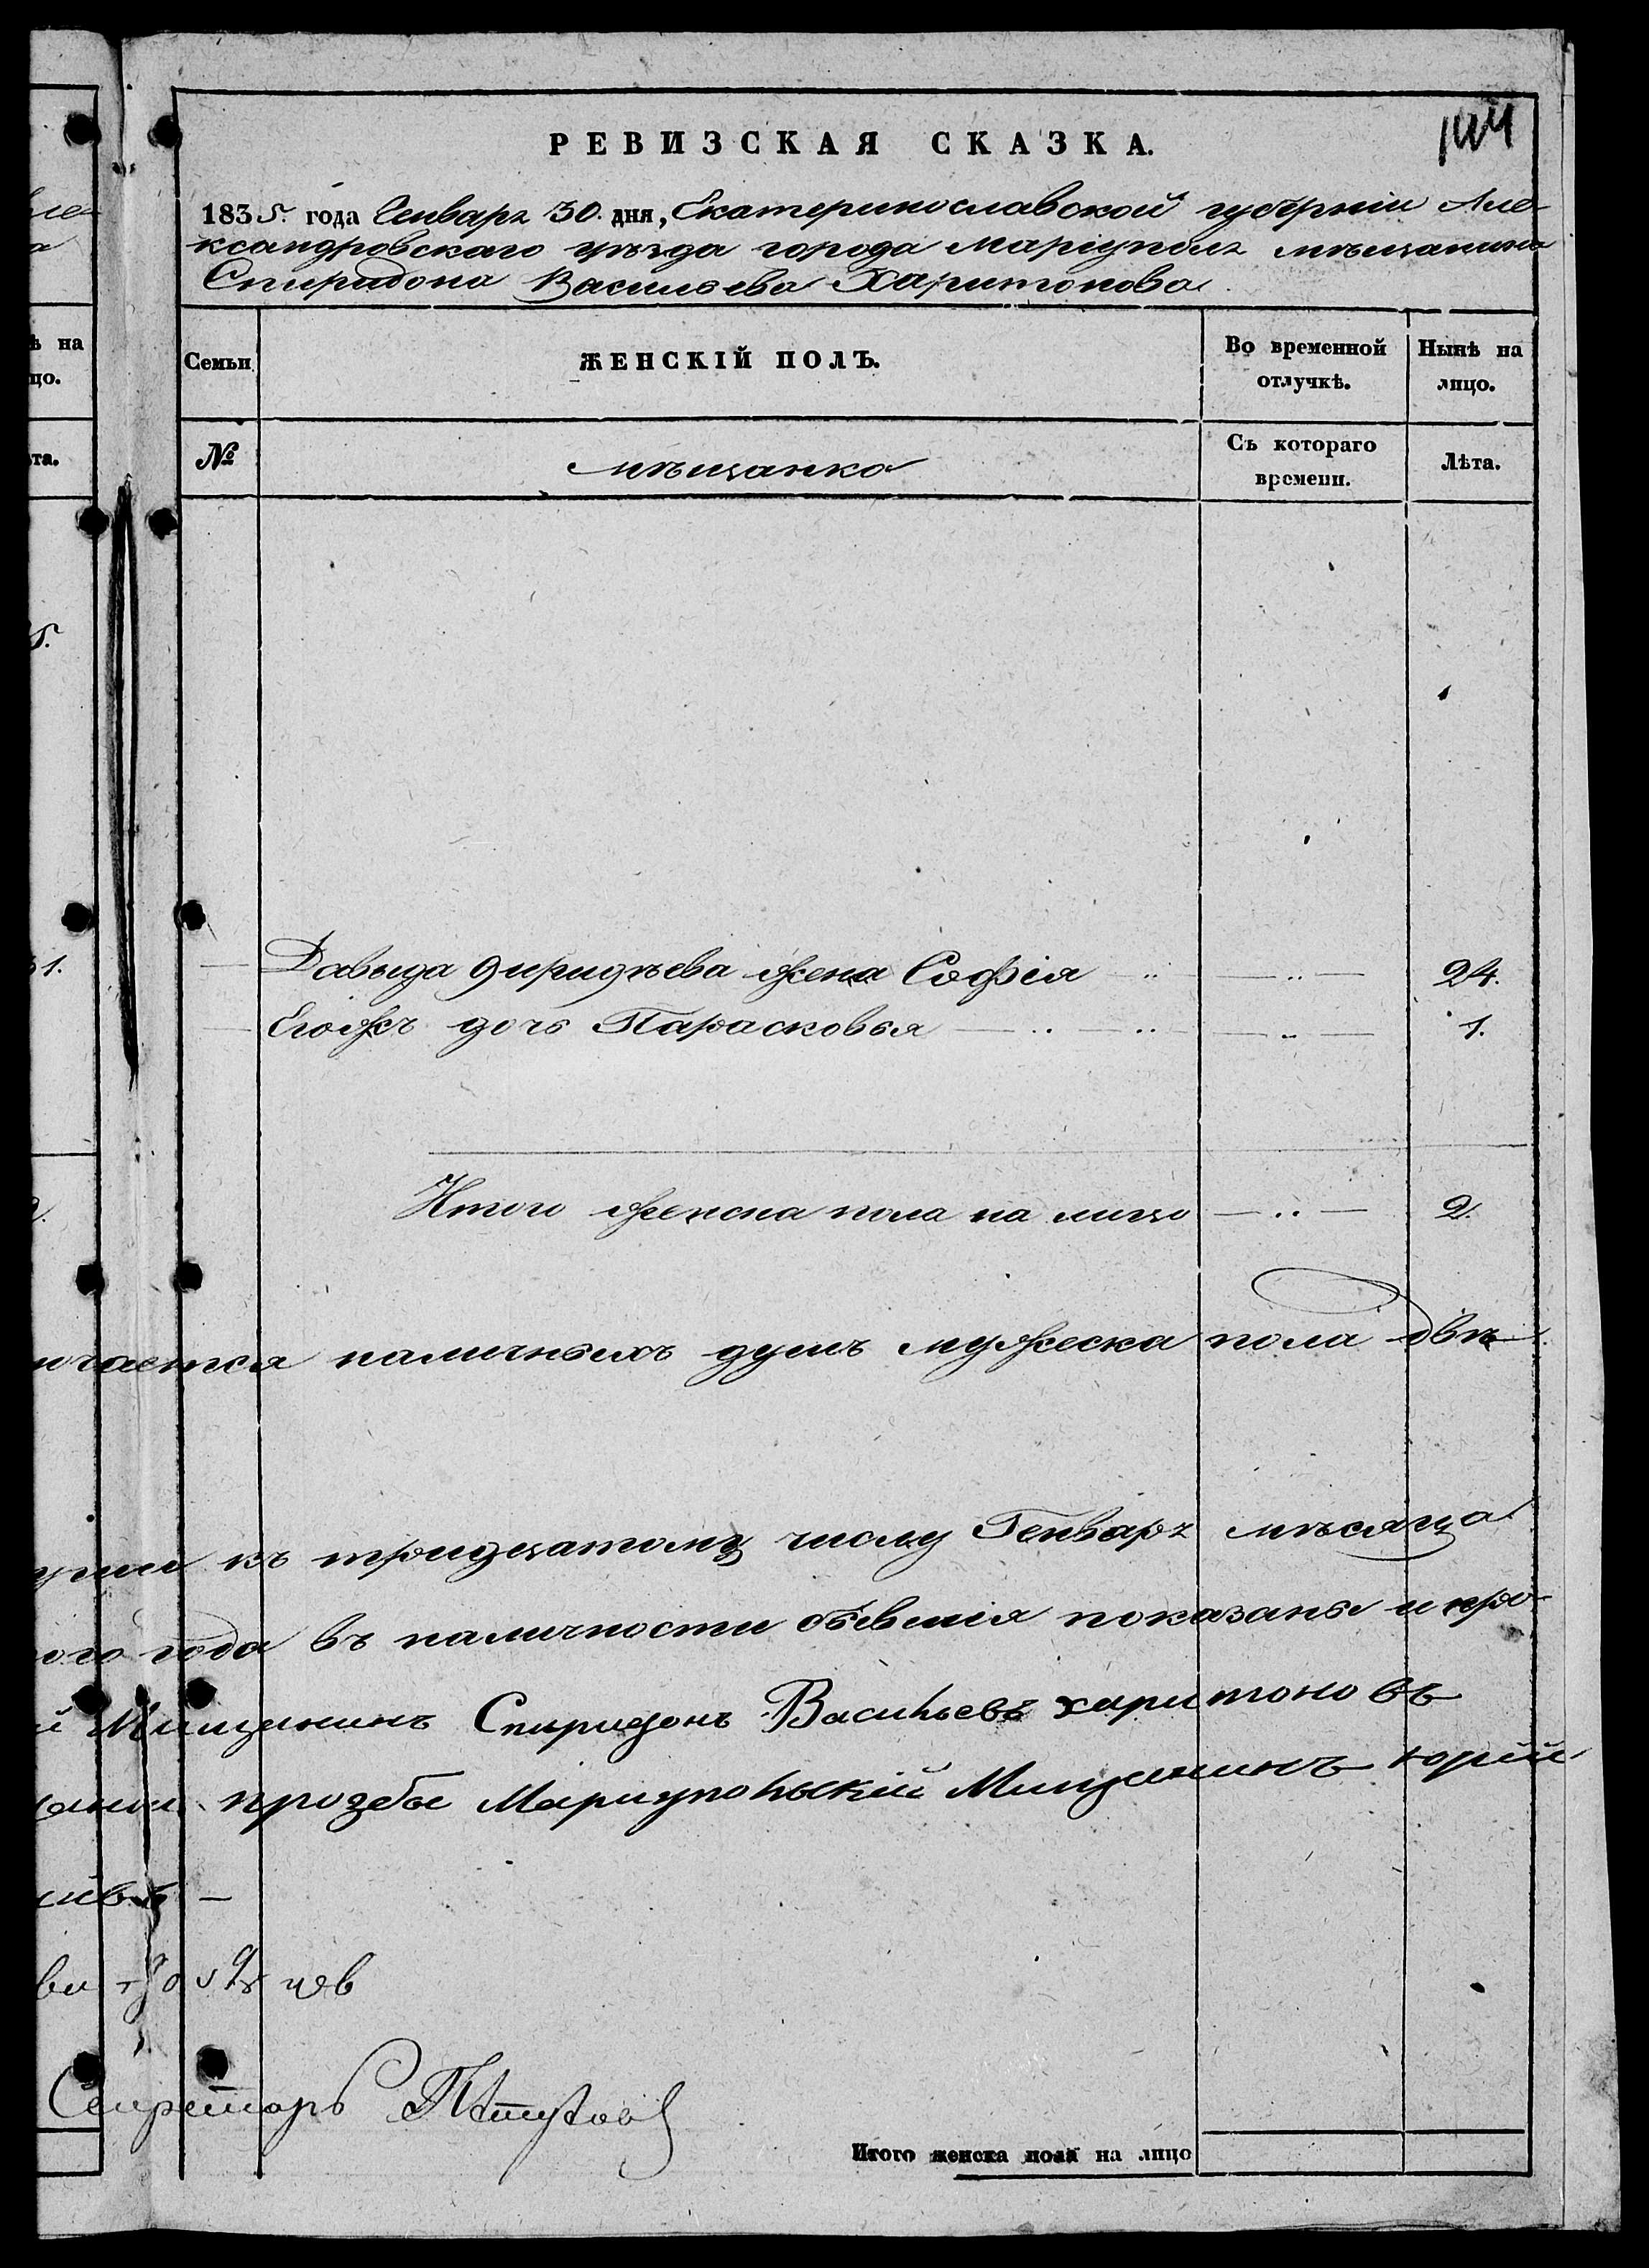 РЕВИЗСКАЯ СКАЗКА.
1835. года Генваря 30. дня, Екатеринославской губерніи Але-
ксандровскаго уѣзда города Маріуполя мѣщанина
Спиридона Васильева Харитонова.
ѣ на
цо.
Семьи
ЖЕНСКІЙ ПОЛЪ.
Во временной
отлучкѣ.
Нынѣ на
лицо.
та.
№
мѣщанка
Съ котораго
времени.
Лѣта.
5.
31.
Давыда жена Софія 24.
Егожъ дочь Парасковья 1.
Итого женска пола на лицо 2.
ючается наличныхъ душъ мужеска пола двѣ
къ тридцатому числу Генваря мѣсяца
ого года въ наличности показаны и про-
й Мищининъ Спиридонъ Васильевъ харитоновъ
прозбы Мариупольский Мищининъ юрий
Секретарь
Итого женска пола на лицо